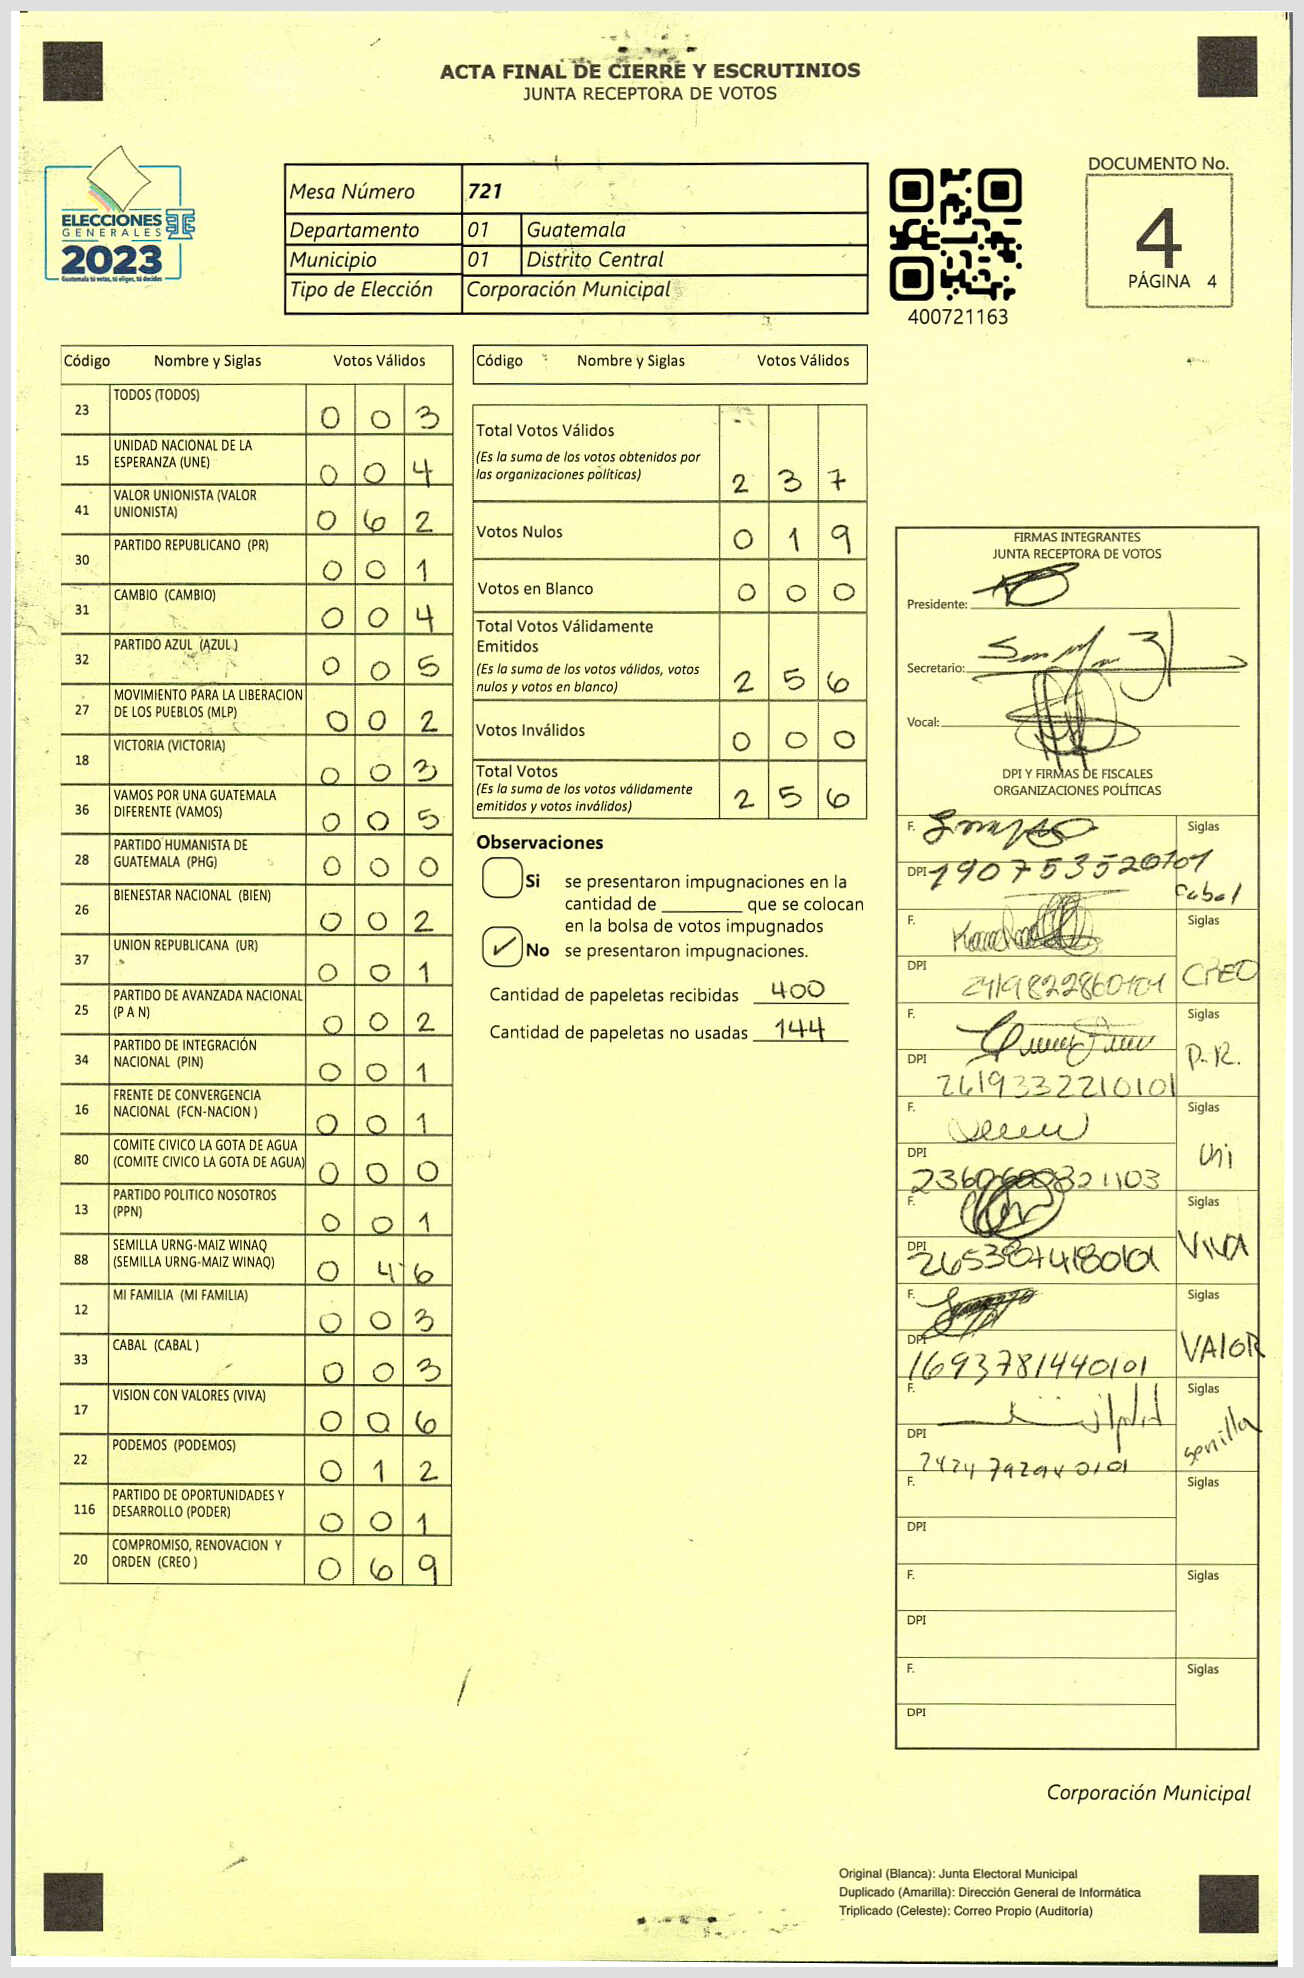 ACTA FINAL DE CIERRE Y ESCRUTINIOS
JUNTA RECEPTORA DE VOTOS
ELECCIONES
GENERALES
2023
Guatemala tú votas, tú eliges, tú decides
Mesa Número 721
Departamento 01 Guatemala
Municipio 01 Distrito Central
Tipo de Elección Corporación Municipal
400721163
DOCUMENTO No.
4
PÁGINA 4
Código Nombre y Siglas Votos Válidos
23 TODOS (TODOS) 0 0 3
15 UNIDAD NACIONAL DE LA ESPERANZA (UNE) 0 0 4
41 VALOR UNIONISTA (VALOR UNIONISTA) 0 6 2
30 PARTIDO REPUBLICANO (PR) 0 0 1
31 CAMBIO (CAMBIO) 0 0 4
32 PARTIDO AZUL (AZUL) 0 0 5
27 MOVIMIENTO PARA LA LIBERACION DE LOS PUEBLOS (MLP) 0 0 2
18 VICTORIA (VICTORIA) 0 0 3
36 VAMOS POR UNA GUATEMALA DIFERENTE (VAMOS) 0 0 5
28 PARTIDO HUMANISTA DE GUATEMALA (PHG) 0 0 0
26 BIENESTAR NACIONAL (BIEN) 0 0 2
37 UNION REPUBLICANA (UR) 0 0 1
25 PARTIDO DE AVANZADA NACIONAL (P A N) 0 0 2
34 PARTIDO DE INTEGRACIÓN NACIONAL (PIN) 0 0 1
16 FRENTE DE CONVERGENCIA NACIONAL (FCN-NACION ) 0 0 1
80 COMITE CIVICO LA GOTA DE AGUA (COMITE CIVICO LA GOTA DE AGUA) 0 0 0
13 PARTIDO POLITICO NOSOTROS (PPN) 0 0 1
88 SEMILLA URNG-MAIZ WINAQ (SEMILLA URNG-MAIZ WINAQ) 0 4 6
12 MI FAMILIA (MI FAMILIA) 0 0 3
33 CABAL (CABAL ) 0 0 3
17 VISION CON VALORES (VIVA) 0 0 6
22 PODEMOS (PODEMOS) 0 1 2
116 PARTIDO DE OPORTUNIDADES Y DESARROLLO (PODER) 0 0 1
20 COMPROMISO, RENOVACION Y ORDEN (CREO ) 0 6 9
Código Nombre y Siglas Votos Válidos
Total Votos Válidos 2 3 7
(Es la suma de los votos obtenidos por
las organizaciones políticas)
Votos Nulos 0 1 9
Votos en Blanco 0 0 0
Total Votos Válidamente
Emitidos 2 5 6
(Es la suma de los votos válidos, votos
nulos y votos en blanco)
Votos Inválidos 0 0 0
Total Votos 2 5 6
(Es la suma de los votos válidamente
emitidos y votos inválidos)
Observaciones
Si se presentaron impugnaciones en la
cantidad de ________ que se colocan
en la bolsa de votos impugnados
✓ No se presentaron impugnaciones.
Cantidad de papeletas recibidas 400
Cantidad de papeletas no usadas 144
FIRMAS INTEGRANTES
JUNTA RECEPTORA DE VOTOS
Presidente:
Secretario:
Vocal:
DPI Y FIRMAS DE FISCALES
ORGANIZACIONES POLÍTICAS
F. Siglas
DPI 1907535520101 Cabal
F. Siglas
DPI CREO
F. Siglas
DPI 2619332210101 P.R.
F. Siglas
DPI Uni
F. Siglas
DPI VIVA
F. Siglas
DPI 1693781440101 VALOR
F. Siglas
DPI semilla
F. Siglas
DPI
F. Siglas
DPI
F. Siglas
DPI
Corporación Municipal
Original (Blanca): Junta Electoral Municipal
Duplicado (Amarilla): Dirección General de Informática
Triplicado (Celeste): Correo Propio (Auditoría)